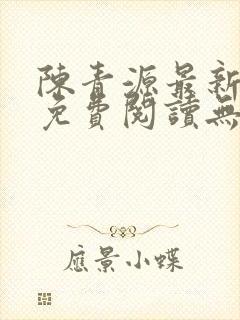 陳青源最新
免費閱讀無
應景小蝶